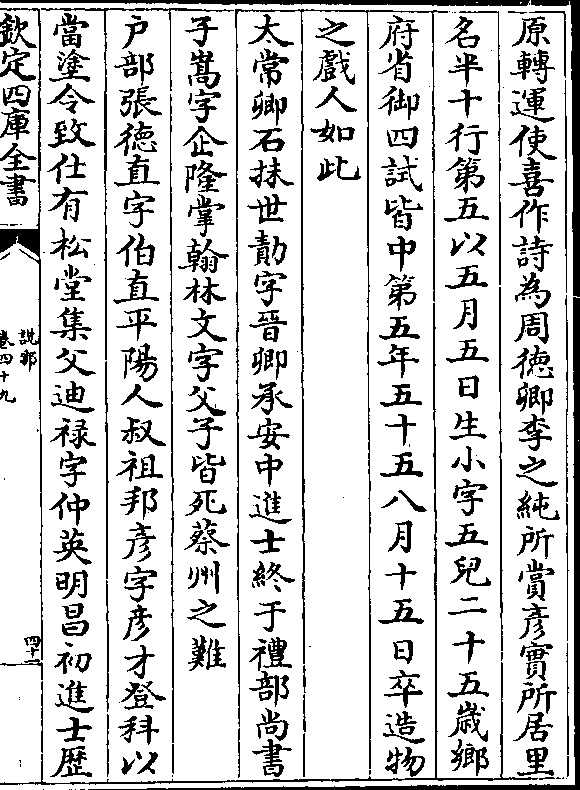 原轉運使喜作詩為周徳卿李之純所賞彦實所居里
名半十行第五以五月五日生小字五兒二十五歳鄉
府省御四試皆中第五年五十五八月十五日卒造物
之戲人如此
大常卿石抹世勣字晉卿承安中進士終于禮部尚書
子嵩字企隆掌翰林文字父子皆死蔡州之難
户部張徳直字伯直平陽人叔祖邦彦字彦才登科以
當塗令致仕有松堂集父迪禄字仲英明昌初進士歴
欽定四庫全書
說郛
卷四十九
四十二